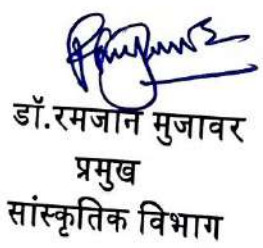 डॉ.रमजान मुजावर
प्रमुख
सांस्कृतिक विभाग